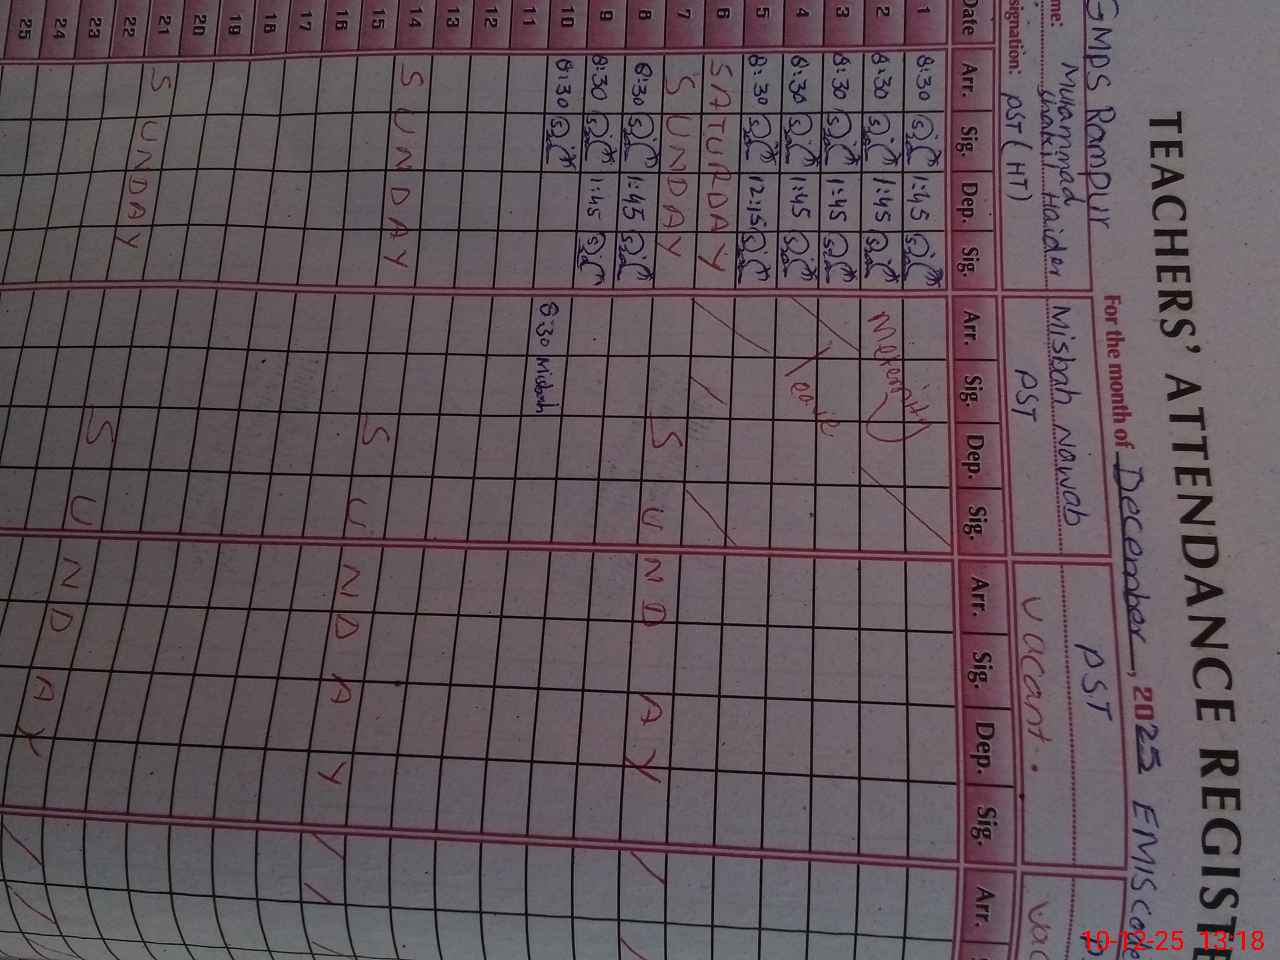 TEACHERS' ATTENDANCE REGISTE
For the month of December, 2025 EMIS Code
GMPS Rampur
me: Muhammad Haider Misbah Nawab PST
signation: PST (HT) PST Vacant.. Vac
Date Arr. Sig. Dep. Sig. Arr. Sig. Dep. Sig. Arr. Sig. Dep. Sig. Arr.
1 8:30 1:45
2 8:30 1:45 Maternity
3 8:30 1:45
4 8:30 1:45 leave
5 8:30 12:15
6 SATURDAY
7 SUNDAY SUNDAY
8 8:30 1:45
9 8:30 1:45
10 8:30 8:30 Misbah
11
12
13
14 SUNDAY SUNDAY
15
16
17
18
19
20
21 SUNDAY SUNDAY
22
23
24
25
10-12-25 13:18